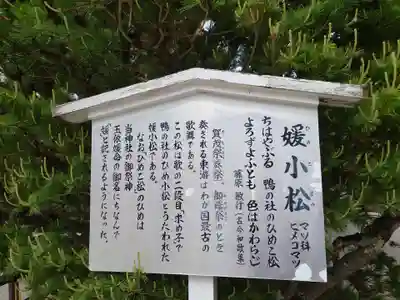 媛小松
ひめこまつ
マツ科
ヒメコマツ
ちはやぶる 鴨の社のひめこ松
よろずよふとも 色はかわらじ
藤原 敏行(古今和歌集)
賀茂祭(葵祭、御蔭祭)のとき
奏される東游はわが国最古の
歌舞である。
この松は歌の二段目「求め子」で
鴨の社のひめ小松とうたわれた
媛小松である。
なおひめこ松のひめは
当神社の御祭神
玉依媛命の御名にちなんで
「媛」と記されるようになった。